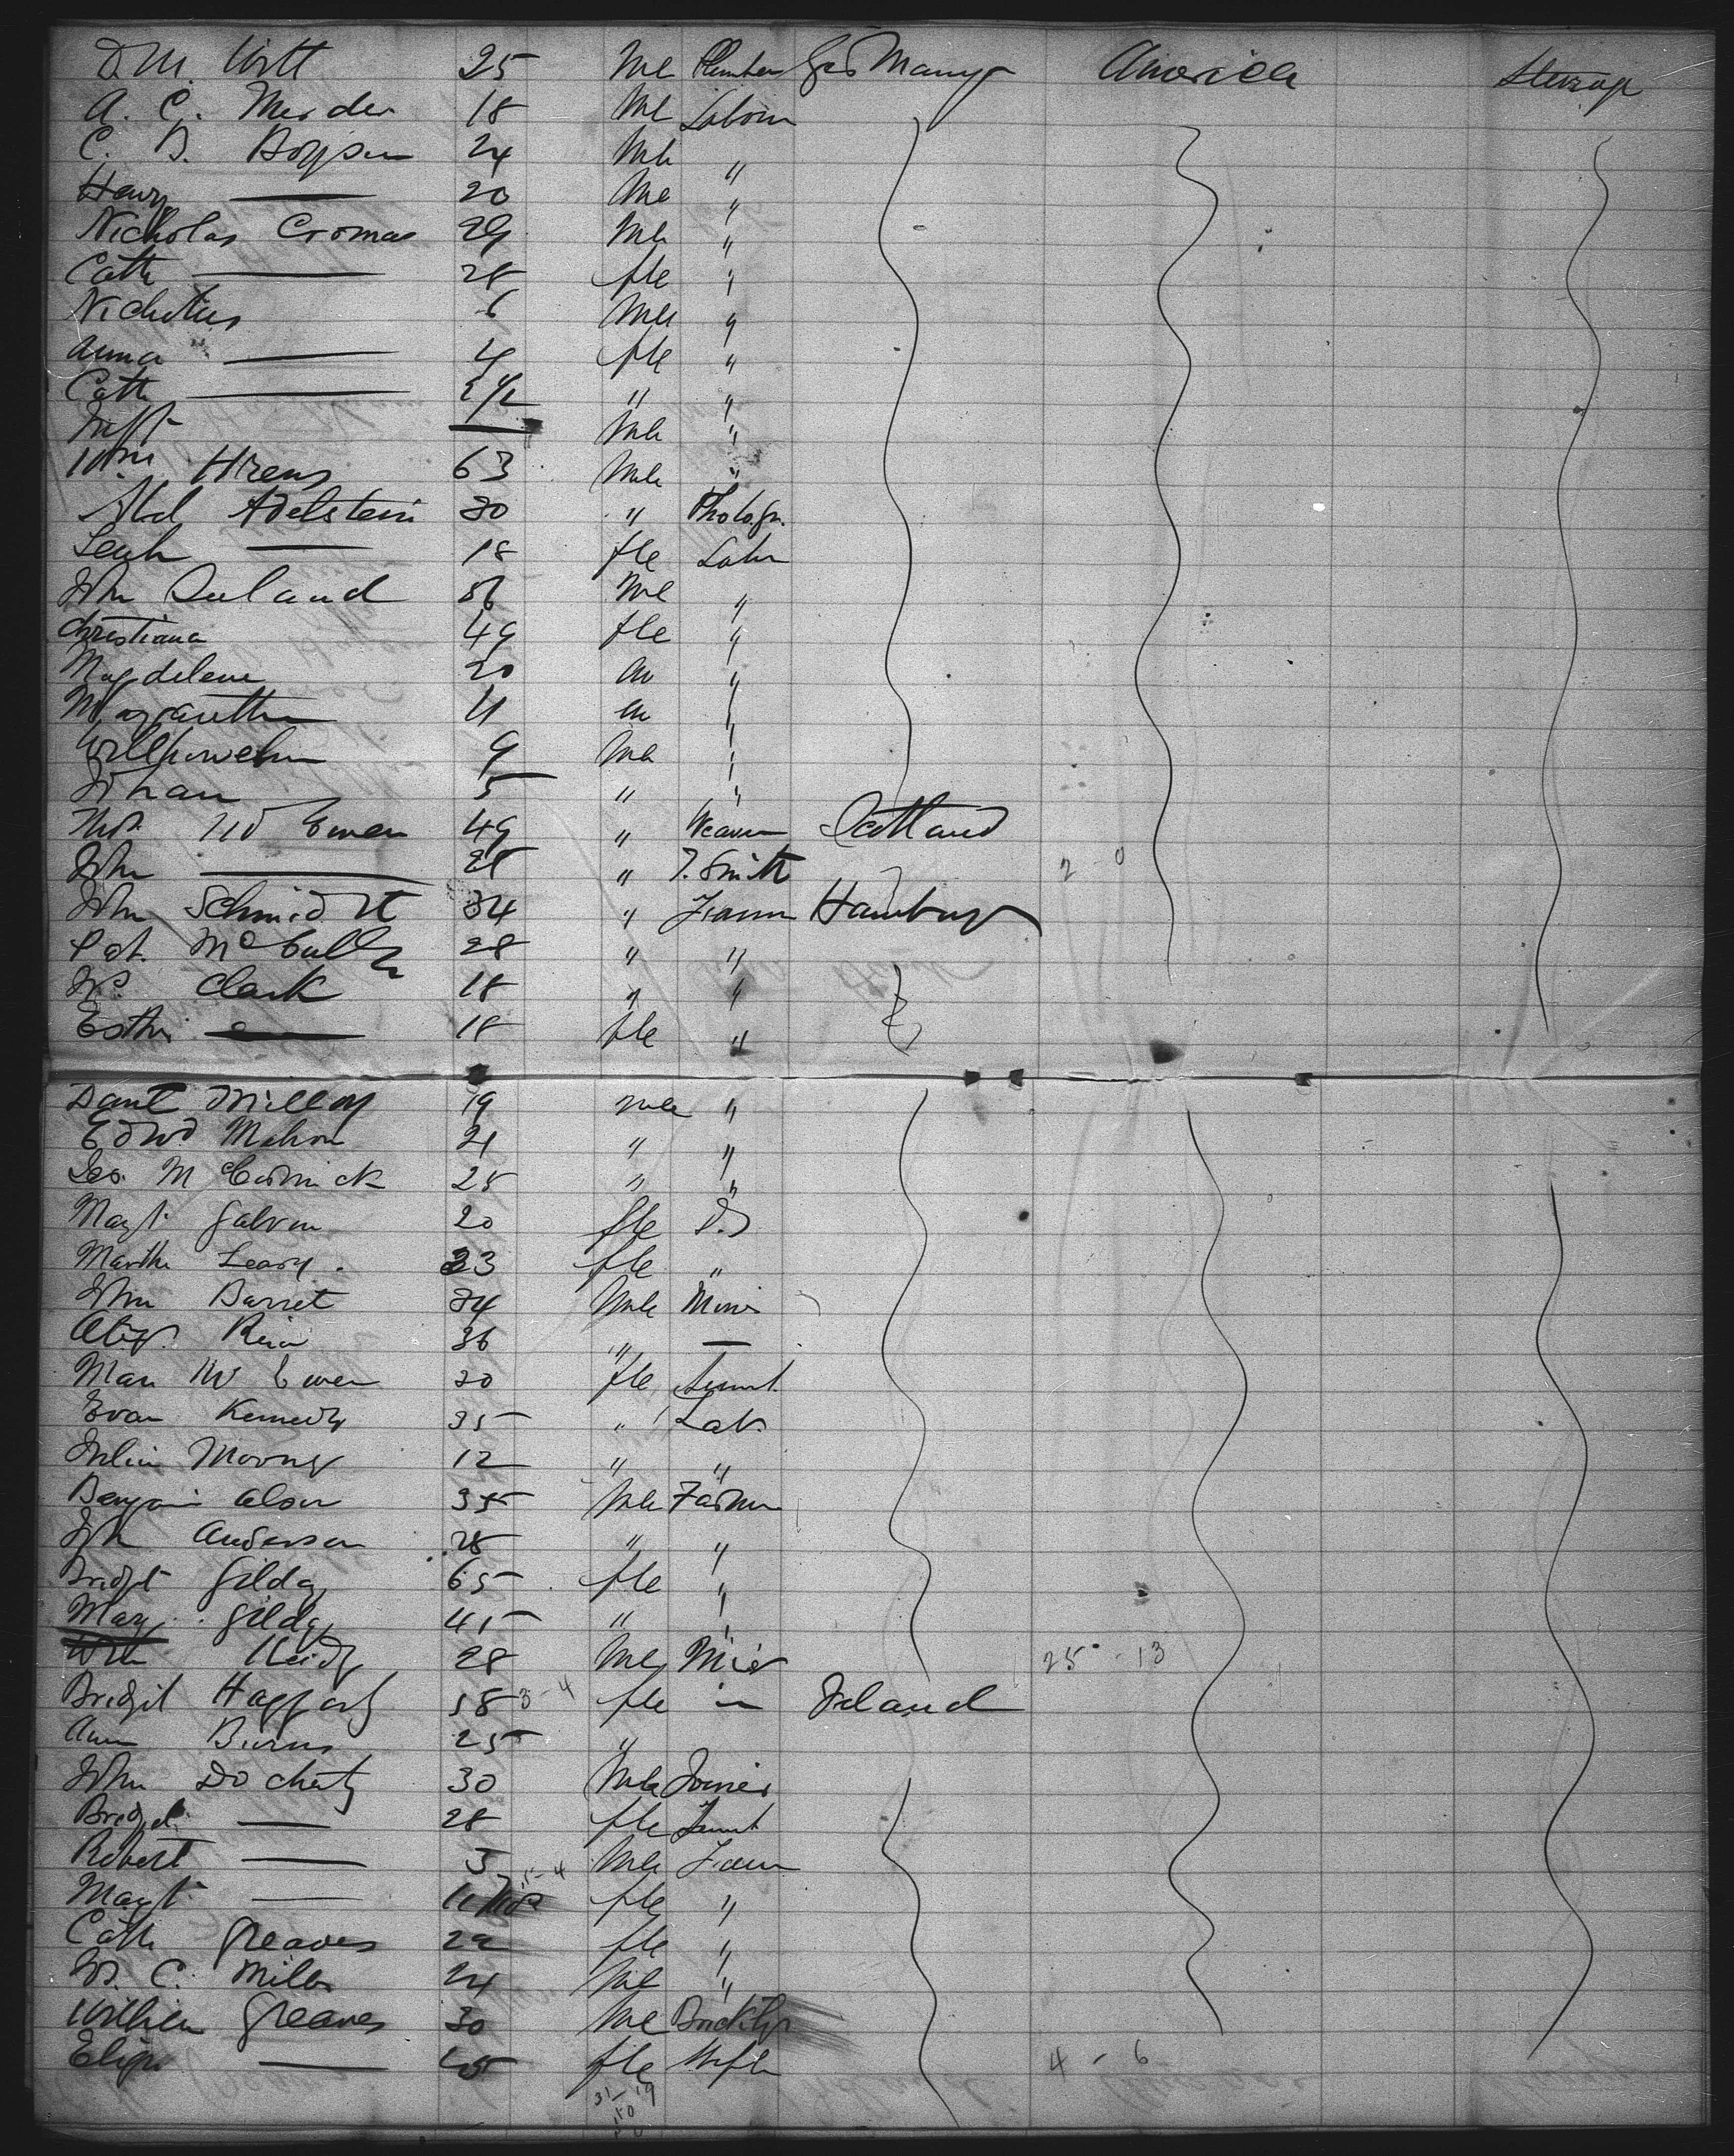 D.M. Witt 25 Me Plumber Germany America Steerage
A. C. 18 Me Labour
C. B. Boysen 24 Me "
Henry — 20 Me "
Nicholas Cromas 29 Me "
Cath — 28 fle "
Nicholus 6 Me "
Anna — 4 fle "
Cath — 2 1/2 " "
Inft Me "
Wm Hrens 63 Male "
Adelstein 30 " Photogr.
Leah — 18 fle Labr
John 56 Me "
Christiana 49 fle "
Magdelene 20 "
Margarethe 11 "
9 Me "
Johan 5 " "
Mc Ewen 49 " Weaver Scotland
John — 28 " T. Smith 2 - 0
John Schmidt 34 " Farmer Hamburg
Pat. McCull 28 " "
Clark 18 " "
Esther — 18 fle "
Danl Milloy 19 Male "
Edwd Mahon 21 " "
Geo. McCormick 25 " "
Magt Galvin 20 fle D.S
Martha Leary. 23 fle "
John Barret 34 Male Miner
36 " —
Mc Ewen 30 fle Servnt.
Evan Kennedy 35 " Lab.
Julia Moony 12 " "
Benjamin Olson 35 Male Farmer
John Anderson 28 " "
Bridget Gilday 65 fle "
Mary Gilday 45 " "
Wm Reidy 28 Me 25 - 13
Bridgit Haggarty 18 3-4 fle Ireland
Ann Burns 25 "
John Docherty 30 Male Joiner
Bridget — 28 fle Servnt
Robert — 3 Me Farm
Magt — 11 Mos 5-4 fle "
Cath Greaves 22 fle "
C. Miller 24 Me "
William Greaves 30 Me Bricklyr
Eliza — fle Wife 4 - 6
31-19
50